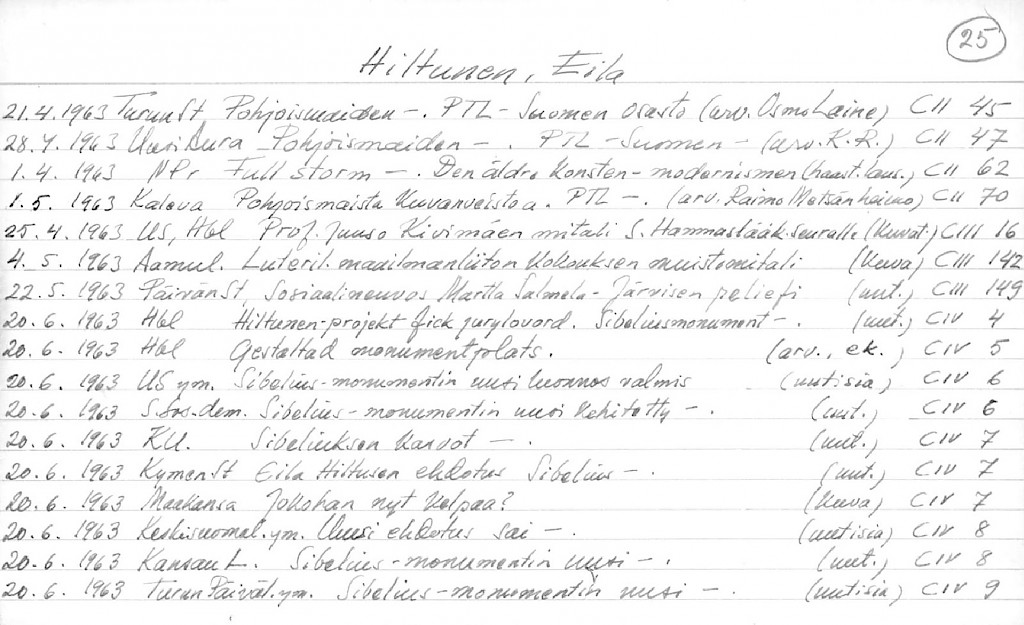 25
Hiltunen, Eila
21.4.1963 TurunSt Pohjoismaiden -. PTL - Suomen osasto (arv. Osmo Laine) CII 45
28.4.1963 Uusi Aura Pohjoismaiden -. PTL - Suomen - (arv. K.R.) CII 47
1.4. 1963 NPr Full storm -. Den äldre konsten - modernismen (haast. laus.) CII 62
1.5. 1963 Kaleva Pohjoismaista kuvanveistoa. PTL -. (arv. Raimo Metsänheimo) CII 70
25.4. 1963 US, Hbl Prof. Juuso Kivimäen mitali S. Hammaslääk.seuralle (kuvat.) CIII 16
4. 5. 1963 Aamul. Luteril. maailmanliiton kokouksen muistomitali (kuva) CIII 142
22.5. 1963 PäivänSt, Sosiaalineuvos Martta Salmela-Järvisen peliefi (uut.) CIII 149
20.6. 1963 Hbl Hiltunen-projekt fick jurylovord. Sibeliusmonument -. (uut.) CIV 4
20.6. 1963 Hbl Gestaltad monumentplats. (arv., ek.) CIV 5
20.6. 1963 US ym. Sibelius-monumentin uusi luonnos valmis (uutisia) CIV 6
20.6. 1963 S.Sos-dem. Sibelius-monumentin uusi kehitetty -. (uut.) CIV 6
20.6. 1963 KU. Sibeliuksen kasvot -. (uut.) CIV 7
20.6. 1963 KymenSt Eila Hiltusen ehdotus Sibelius -. (uut.) CIV 7
20.6. 1963 Maakansa Jokohan nyt kelpaa? (kuva) CIV 7
20.6. 1963 Keskisuomal. ym. Uusi ehdotus sai -. (uutisia) CIV 8
20.6. 1963 Kansan L. Sibelius-monumentin uusi -. (uut.) CIV 8
20.6. 1963 Turun Päiväl. ym. Sibelius-monumentin uusi -. (uutisia) CIV 9